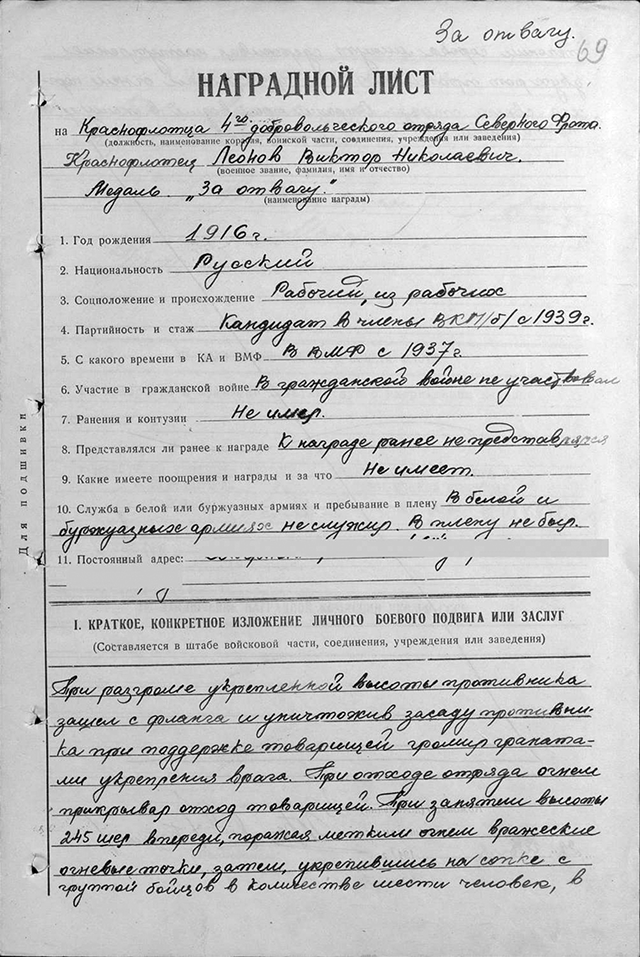 За отвагу.
69
НАГРАДНОЙ ЛИСТ
на Краснофлотца 4го добровольческого отряда Северного Флота.
(должность, наименование корабля, воинской части, соединения, учреждения или заведения)
Краснофлотец Леонов Виктор Николаевич.
(военное звание, фамилия, имя и отчество)
Медаль „За отвагу."
(наименование награды)
1. Год рождения 1916 г.
2. Национальность Русский
3. Соцположение и происхождение Рабочий, из рабочих
4. Партийность и стаж Кандидат в члены ВКП/б/ с 1939 г.
5. С какого времени в КА и ВМФ В ВМФ с 1937 г.
6. Участие в гражданской войне В гражданской войне не участвовал
7. Ранения и контузии Не имел.
8. Представлялся ли ранее к награде К награде ранее не представлялся
9. Какие имеет поощрения и награды и за что Не имеет.
10. Служба в белой или буржуазных армиях и пребывание в плену В белой и
буржуазных армиях не служил. В плену не был.
11. Постоянный адрес:
Для подшивки
I. КРАТКОЕ, КОНКРЕТНОЕ ИЗЛОЖЕНИЕ ЛИЧНОГО БОЕВОГО ПОДВИГА ИЛИ ЗАСЛУГ
(Составляется в штабе войсковой части, соединения, учреждения или заведения)
При разгроме укрепленной высоты противника
зашел с фланга и уничтожив засаду противни-
ка при поддержке товарищей громил граната-
ми укрепления врага. При отходе отряда огнем
прикрывал отход товарищей. При занятии высоты
245 шел впереди, поражая метким огнем вражеские
огневые точки, затем, укрепившись на сопке с
группой бойцов в количестве шести человек, в